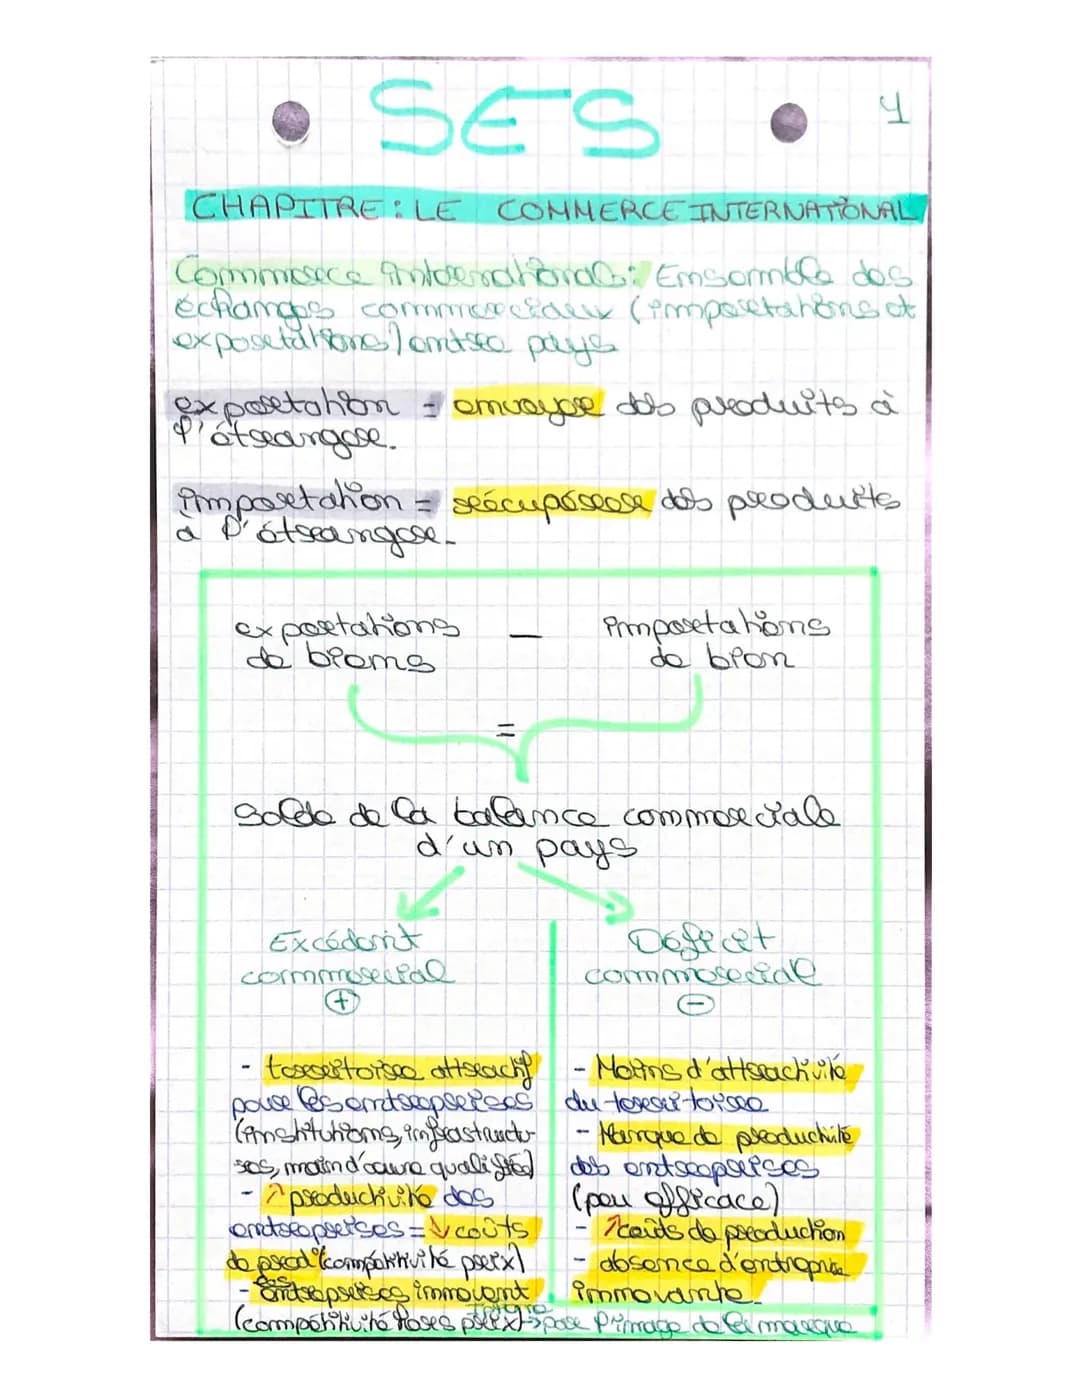 SES
1
CHAPITRE : LE COMMERCE INTERNATIONAL
Commerce international : Ensemble des
échanges commerciaux (importations et
exportations) entre pays
exportation = envoyer des produits à
l'étranger.
Importation = récupérer des produits
à l'étranger.
exportations — importations
de biens de bien
=
Solde de la balance commerciale
d'un pays
Excédent
commercial
+
- territoire attractif
pour les entreprises
(institutions, infrastructu-
res, main d'œuvre qualifiée)
- ↗ productivité des
entreprises = ↓ coûts
de prod° (compétitivité prix)
- des entreprises innovent
(compétitivité hors prix) → par l'image de la marque
Déficit
commercial
-
- Moins d'attractivité
du territoire
- Manque de productivité
des entreprises
(peu efficace)
- ↗ coûts de production
- absence d'entreprise
innovante.